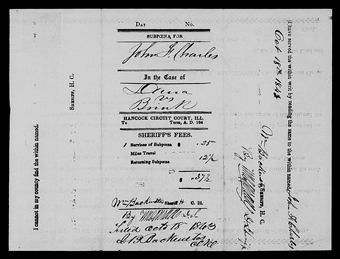 DAY NO.
SUBPŒNA, FOR
John F. Charles
In the Case of
vs
Brink
HANCOCK CIRCUIT COURT, ILL.
To Term, A. D. 184
SHERIFF'S FEES.
1 Services of Subpœna $ .25
Miles Travel
Returning Subpœna 12½
$ .37½
Wm Backenstos Sheriff H. C. Ill.
By
Filed Oct 18 1843
J B Backenstos
I have served the within writ by reading the same to the within named
Oct 18th 1843
Wm Backenstos
SHERIFF, H. C.
By
SHERIFF, H. C.
I cannot in my county find the within named.